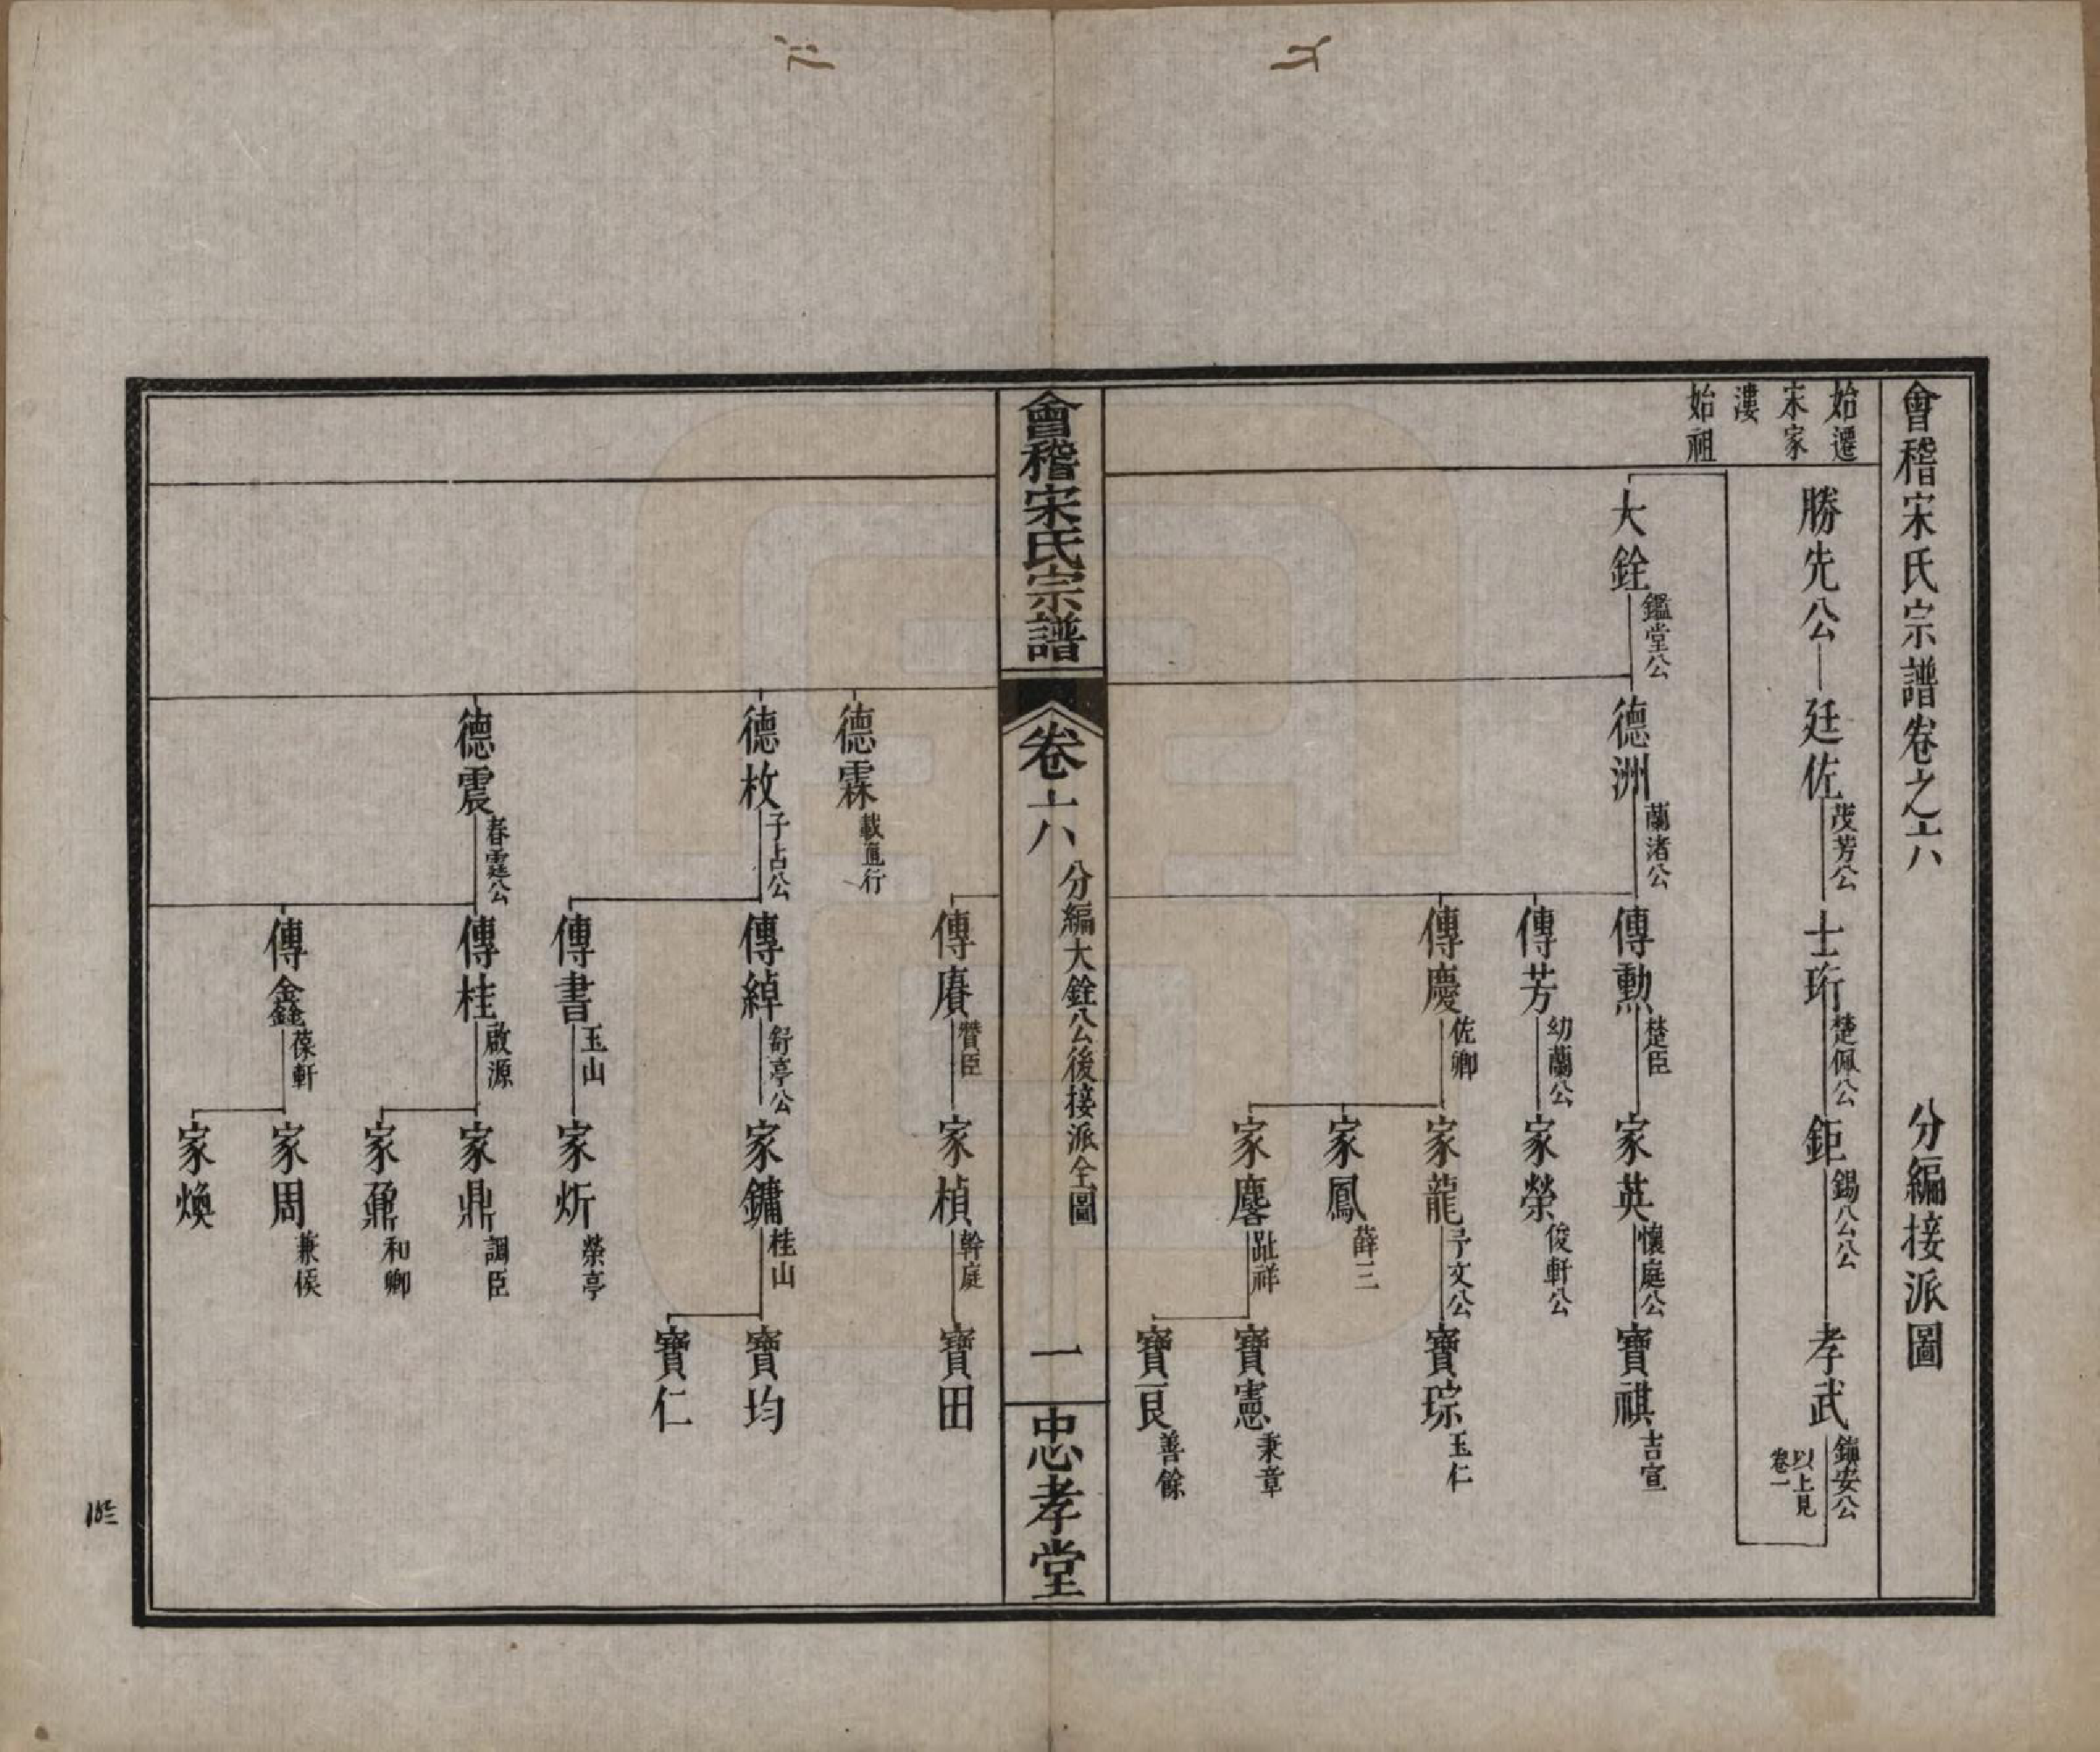 會稽宋氏宗譜卷之六 分編接派圖
始遷
宋家
漊
始祖
勝先公 廷佐 茂芳公 士珩 楚佩公 鉅 錫公公 孝武 鎮安公
以上見
卷一
大銓 鑑堂公 德洲 蘭渚公 傳勲 楚臣 家英 懷庭公 寶祺 吉宣
傳芳 幼蘭公 家榮 俊軒公
傳慶 佐卿 家龍 予文公 寶琮 玉仁
家鳳 薛三
家麐 趾祥 寶憲 秉章
寶艮 善餘
會稽宋氏宗譜 卷六 分編大銓公後接派全圖 一 忠孝堂
傳賡 贊臣 家楨 幹庭 寶田
德霖 載亟行
德枚 子占公 傳綽 舒亭公 家鏞 桂山 寶均
寶仁
傳書 玉山 家炘 榮亭
德震 春霆公 傳桂 啟源 家鼎 調臣
家鼐 和卿
傳鑫 葆軒 家周 兼侯
家煥